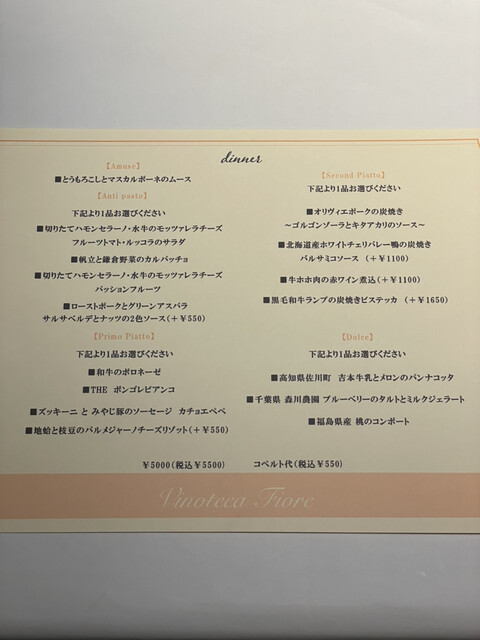 dinner
【Amuse】
■とうもろこしとマスカルポーネのムース
【Anti pasto】
下記より1品お選びください
■切りたてハモンセラーノ・水牛のモッツァレラチーズ
フルーツトマト・ルッコラのサラダ
■帆立と鎌倉野菜のカルパッチョ
■切りたてハモンセラーノ・水牛のモッツァレラチーズ
パッションフルーツ
■ローストポークとグリーンアスパラ
サルサベルデとナッツの2色ソース(+¥550)
【Primo Piatto】
下記より1品お選びください
■和牛のボロネーゼ
■THE ボンゴレビアンコ
■ズッキーニ と みやじ豚のソーセージ カチョエペペ
■地蛤と枝豆のパルメジャーノチーズリゾット(+¥550)
【Second Piatto】
下記より1品お選びください
■オリヴィエポークの炭焼き
~ゴルゴンゾーラとキタアカリのソース~
■北海道産ホワイトチェリバレー鴨の炭焼き
バルサミコソース (+¥1100)
■牛ホホ肉の赤ワイン煮込(+¥1100)
■黒毛和牛ランプの炭焼きビステッカ (+¥1650)
【Dolce】
下記より1品お選びください
■高知県佐川町 吉本牛乳とメロンのパンナコッタ
■千葉県 森川農園 ブルーベリーのタルトとミルクジェラート
■福島県産 桃のコンポート
¥5000(税込¥5500) コペルト代(税込¥550)
Vinoteca Fiore